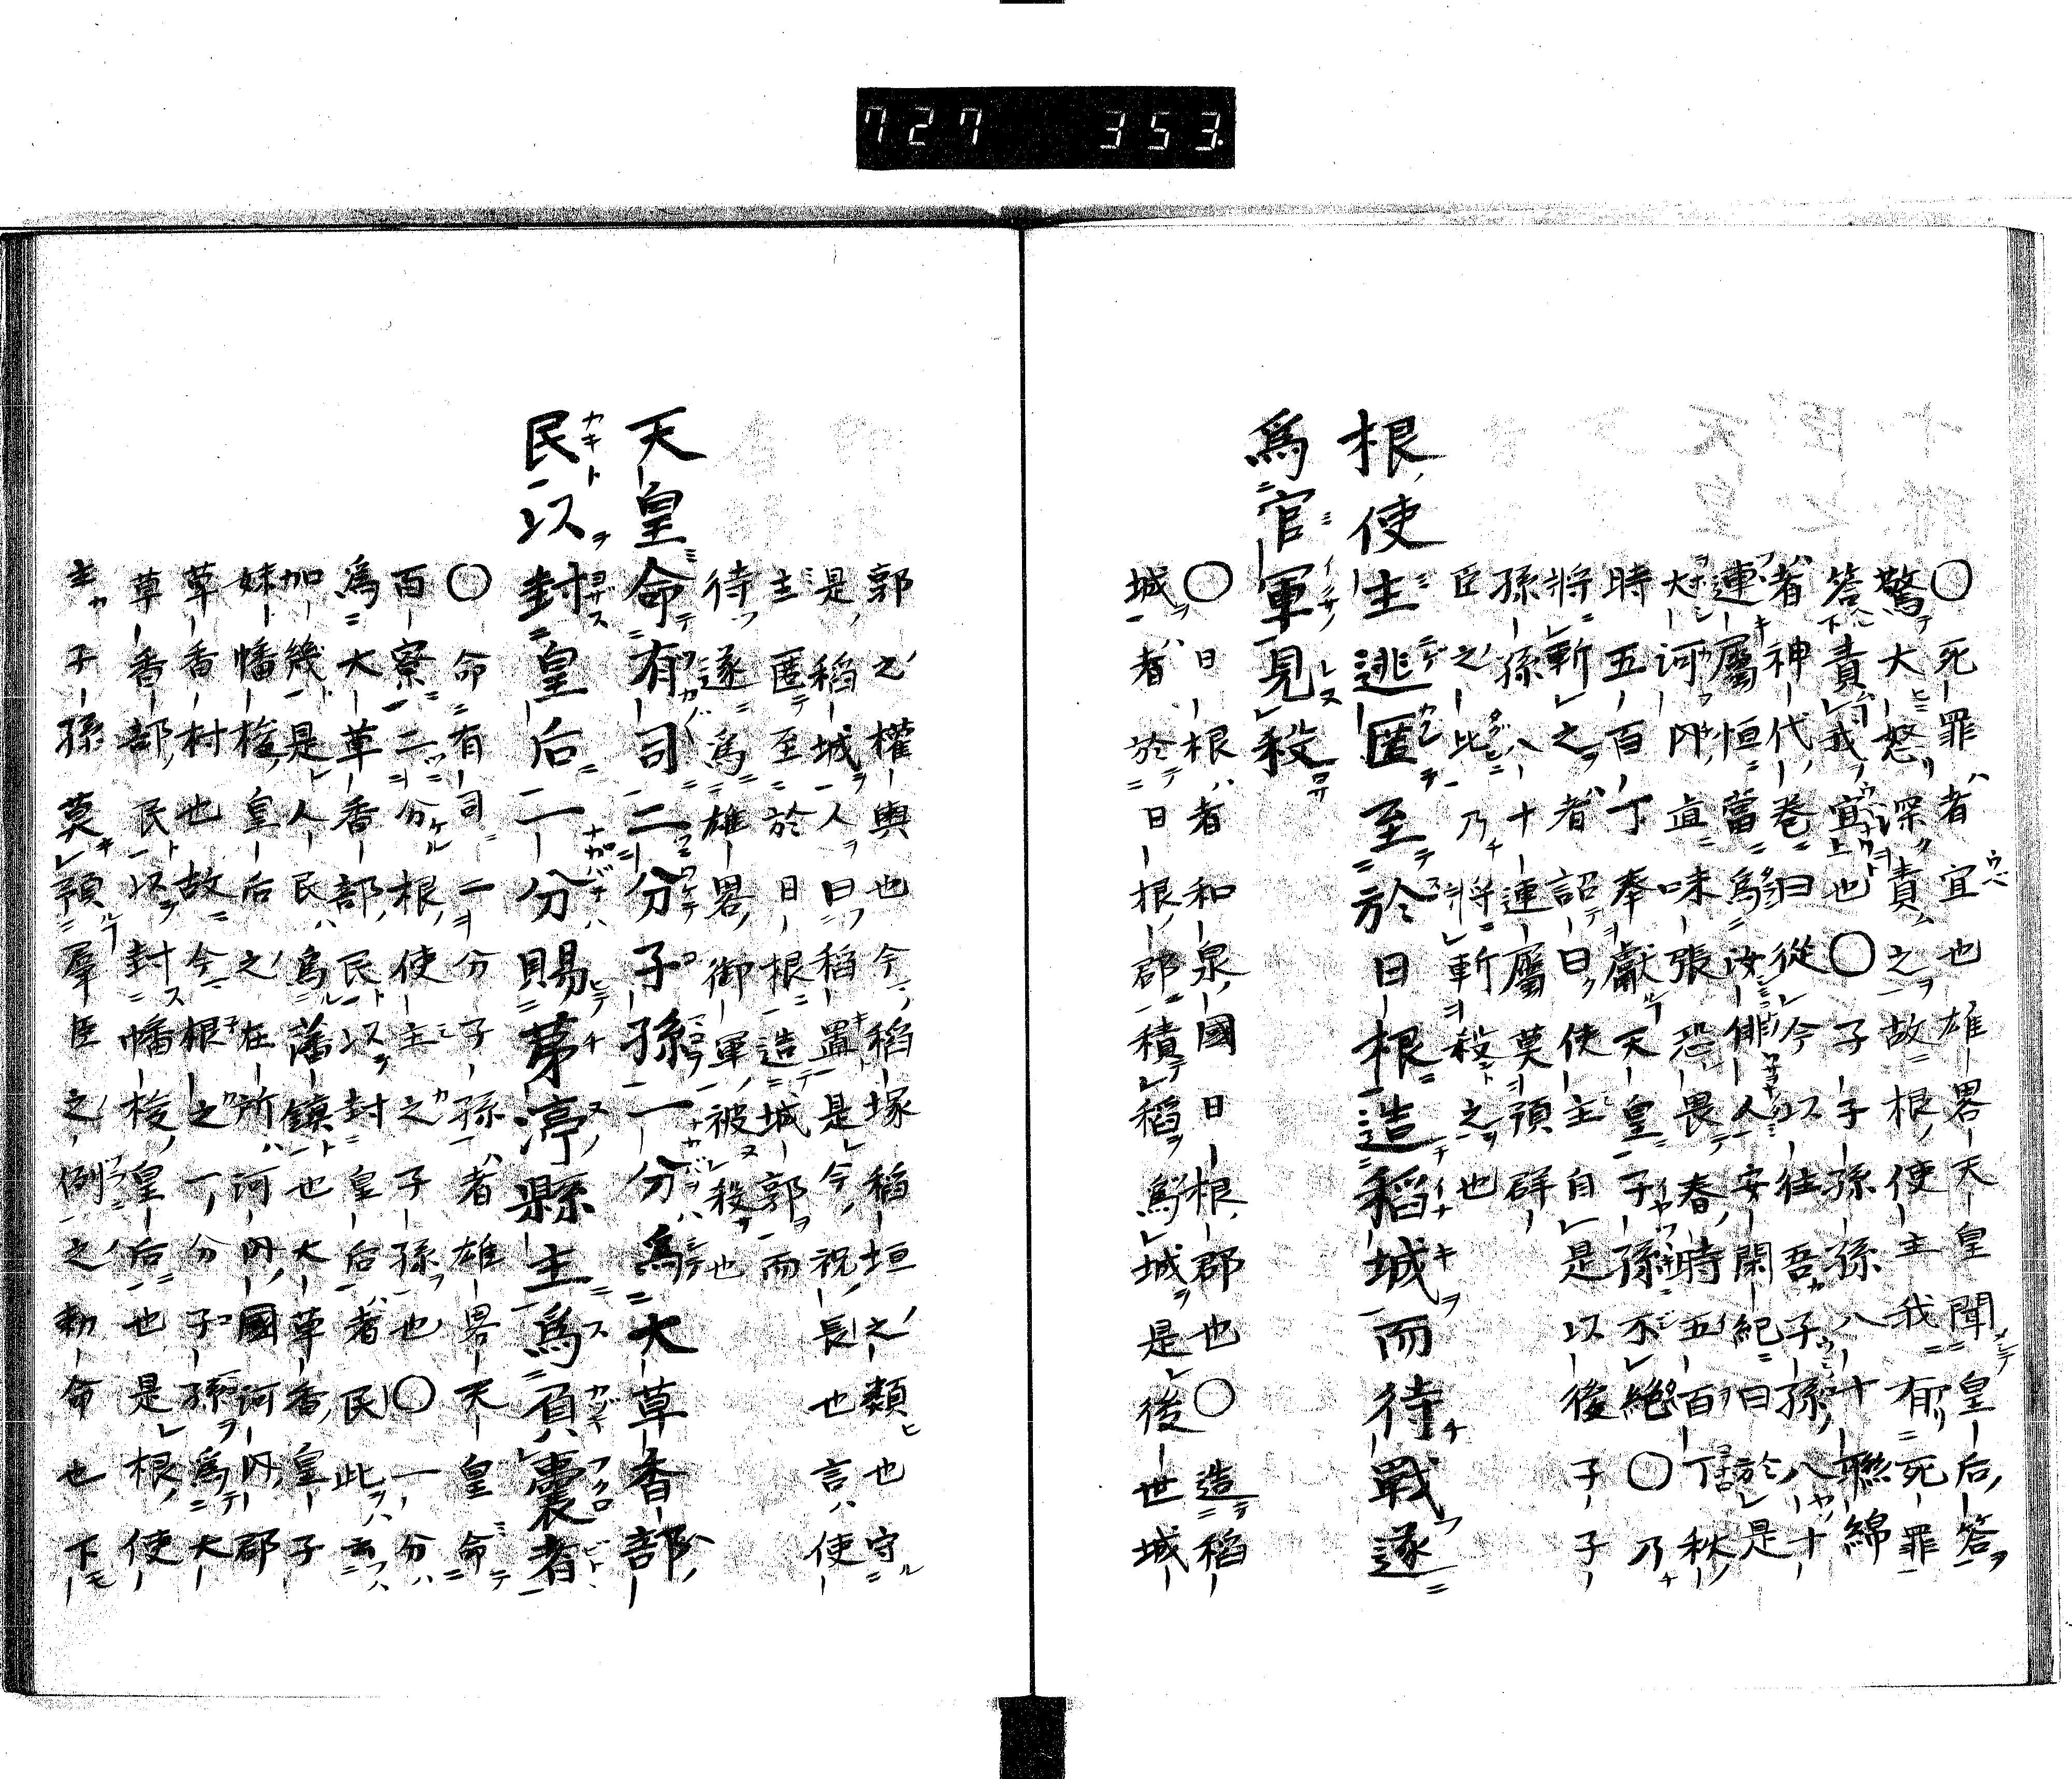 727 353
〇死罪者宜也雄畧天皇聞皇后答
驚大怒深責之故根使主我有死罪
答責我宜也〇子子孫孫八十聯綿
者神代巻曰從今以往吾子孫八十
連屬恒當為汝俳人安閑紀曰於是
大河内直味張恐畏春時五百丁秋
時五百丁奉獻天皇子孫不絶〇乃
將斬之者詔曰使主自是以後子子
孫孫八十連屬莫預群
臣之此乃將斬殺之也
根使主逃匿至於日根造稻城而待戰遂
為官軍見殺
〇日根者和泉國日根郡也〇造稻
城者於日根郡積稻為城是後世城
郭之權輿也今稻塚稻垣之類也守
是稻城人曰稻置是今祝長也言使
主匿至於日根造城郭而
待遂為雄畧御軍被殺也
天皇命有司二分子孫一分為大草香部
民以封皇后一分賜茅渟縣主為負囊者
〇命有司二分子孫者雄畧天皇命
百寮二分根使主之子孫也〇一分
為大草香部民以封皇后者民此云
加幾是人民為藩鎮也大草香皇子
妹幡梭皇后之在所河内國河内郡
草香村也故今根之一分子孫為大
草香部民以封幡梭皇后也是根使
主子孫莫預羣臣之例之勅命也下